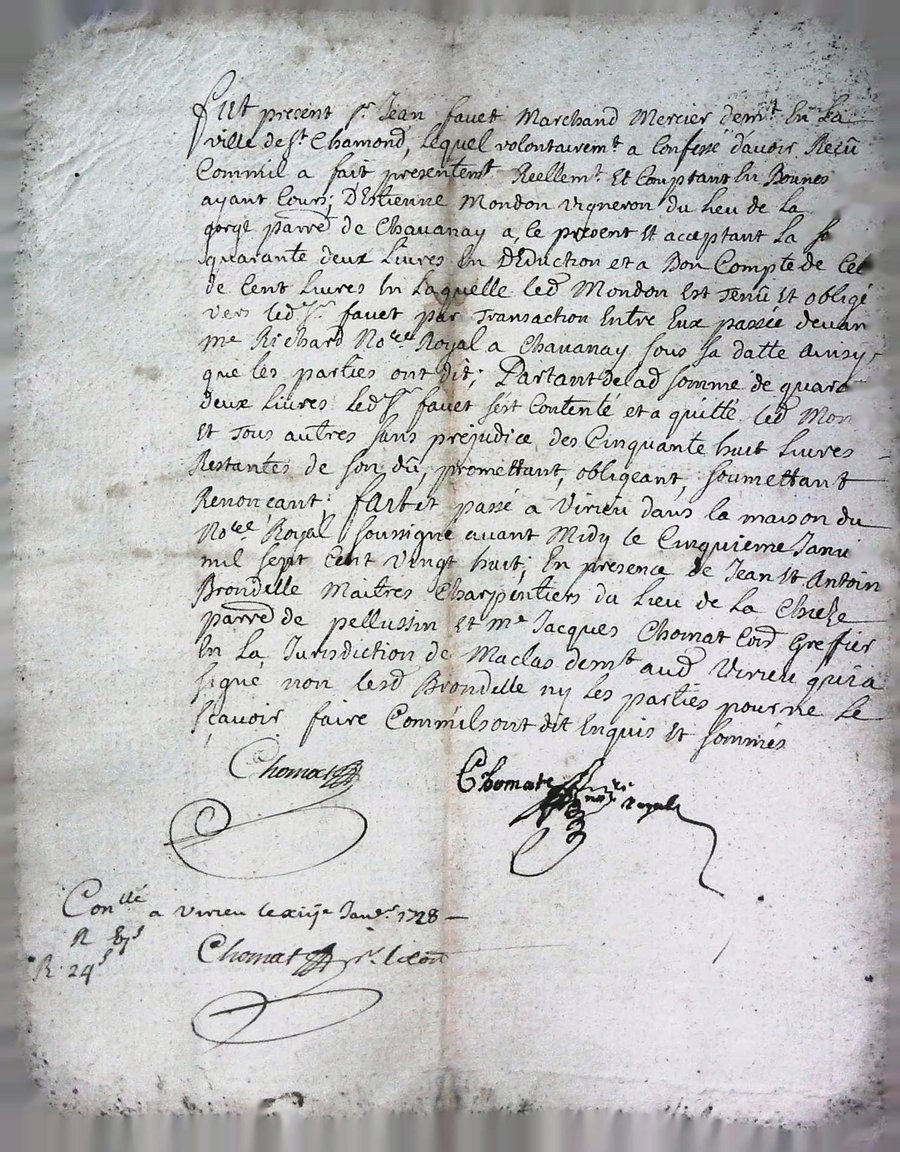 Fut present Sr. Jean favet Marchand Mercier demt. En La
ville de St. Chamond, Lequel volontairemt a Confessé d'avoir Reçû
Commil a fait presentemt Reellemt. Et Comptant En Bonnes
ayant Cours; D'Estienne Mondon vigneron du Lieu de la
gorge parre de Chavanay a, ce present Et acceptant La so
quarante deux Livres En Déduction et a Bon Compte de Cel
de Cent Livres En Laquelle led Mondon Est Tenû Et obligé
vers led Sr. favet par Transaction Entre Eux passée devan
me Richard Nore Royal a Chavanay sous sa datte ainsy
que les parties ont dit; Partant de lad somme de quara
deux Livres Led Sr favet s'est Contenté et a quitté led Mon
Et Tous autres sans préjudice des Cinquante huit Livres
Restantes de son dû, promettant, obligeant, soumettant
Renonçant; fait et passé a Virieu dans la maison du
Nore Royal soussigné avant Midy le Cinquieme Janv
mil sept Cent vingt huit; En presence de Jean Et Antoin
Brondelle Maitres Charpentiers du Lieu de La
parre de pellussin Et me Jacques Chomat Greffier
En La Jurisdiction de Maclas demt aud Virieu qui a
signé non lesd Brondelle ny Les parties pour ne Le
sçavoir faire Commilsont dit Enquis Et sommés
Chomat
Chomat nore Royal
Conllé a virieu le Janvr 1728
R
R. 24s
Chomat